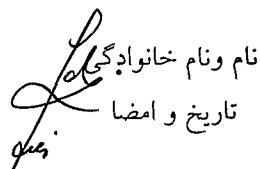 نام ونام خانوادگی
تاریخ و امضا